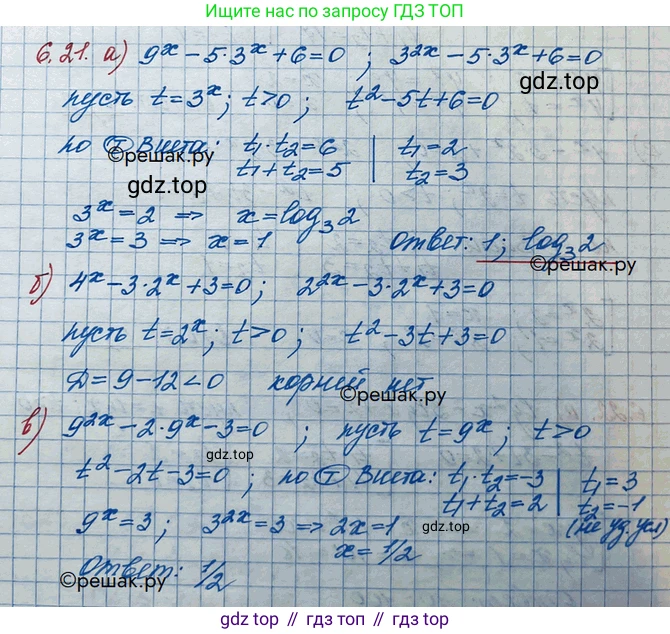 Ищите нас по запросу ГДЗ ТОП
6.21. а) 9ˣ − 5·3ˣ + 6 = 0 ; 3²ˣ − 5·3ˣ + 6 = 0
gdz.top
пусть t = 3ˣ; t > 0 ; t² − 5t + 6 = 0
по Ⓣ Виета: t₁·t₂ = 6 | t₁ = 2
©решак.ру
t₁ + t₂ = 5 | t₂ = 3
gdz.top
3ˣ = 2 ⇒ x = log₃2
3ˣ = 3 ⇒ x = 1 Ответ: 1; log₃2
©решак.ру
б) 4ˣ − 3·2ˣ + 3 = 0 ; 2²ˣ − 3·2ˣ + 3 = 0
пусть t = 2ˣ; t > 0 ; t² − 3t + 3 = 0
Д = 9 − 12 < 0 корней нет
©решак.ру
в) 9²ˣ − 2·9ˣ − 3 = 0 ; пусть t = 9ˣ ; t > 0
gdz.top
t² − 2t − 3 = 0 ; по Ⓣ Виета: t₁·t₂ = −3 | t₁ = 3
t₁ + t₂ = 2 | t₂ = −1
9ˣ = 3 ; 3²ˣ = 3 ⇒ 2x = 1 (не уд. усл)
gdz.top
x = 1/2
Ответ: 1/2
©решак.ру
gdz топ // гдз топ // gdz.top